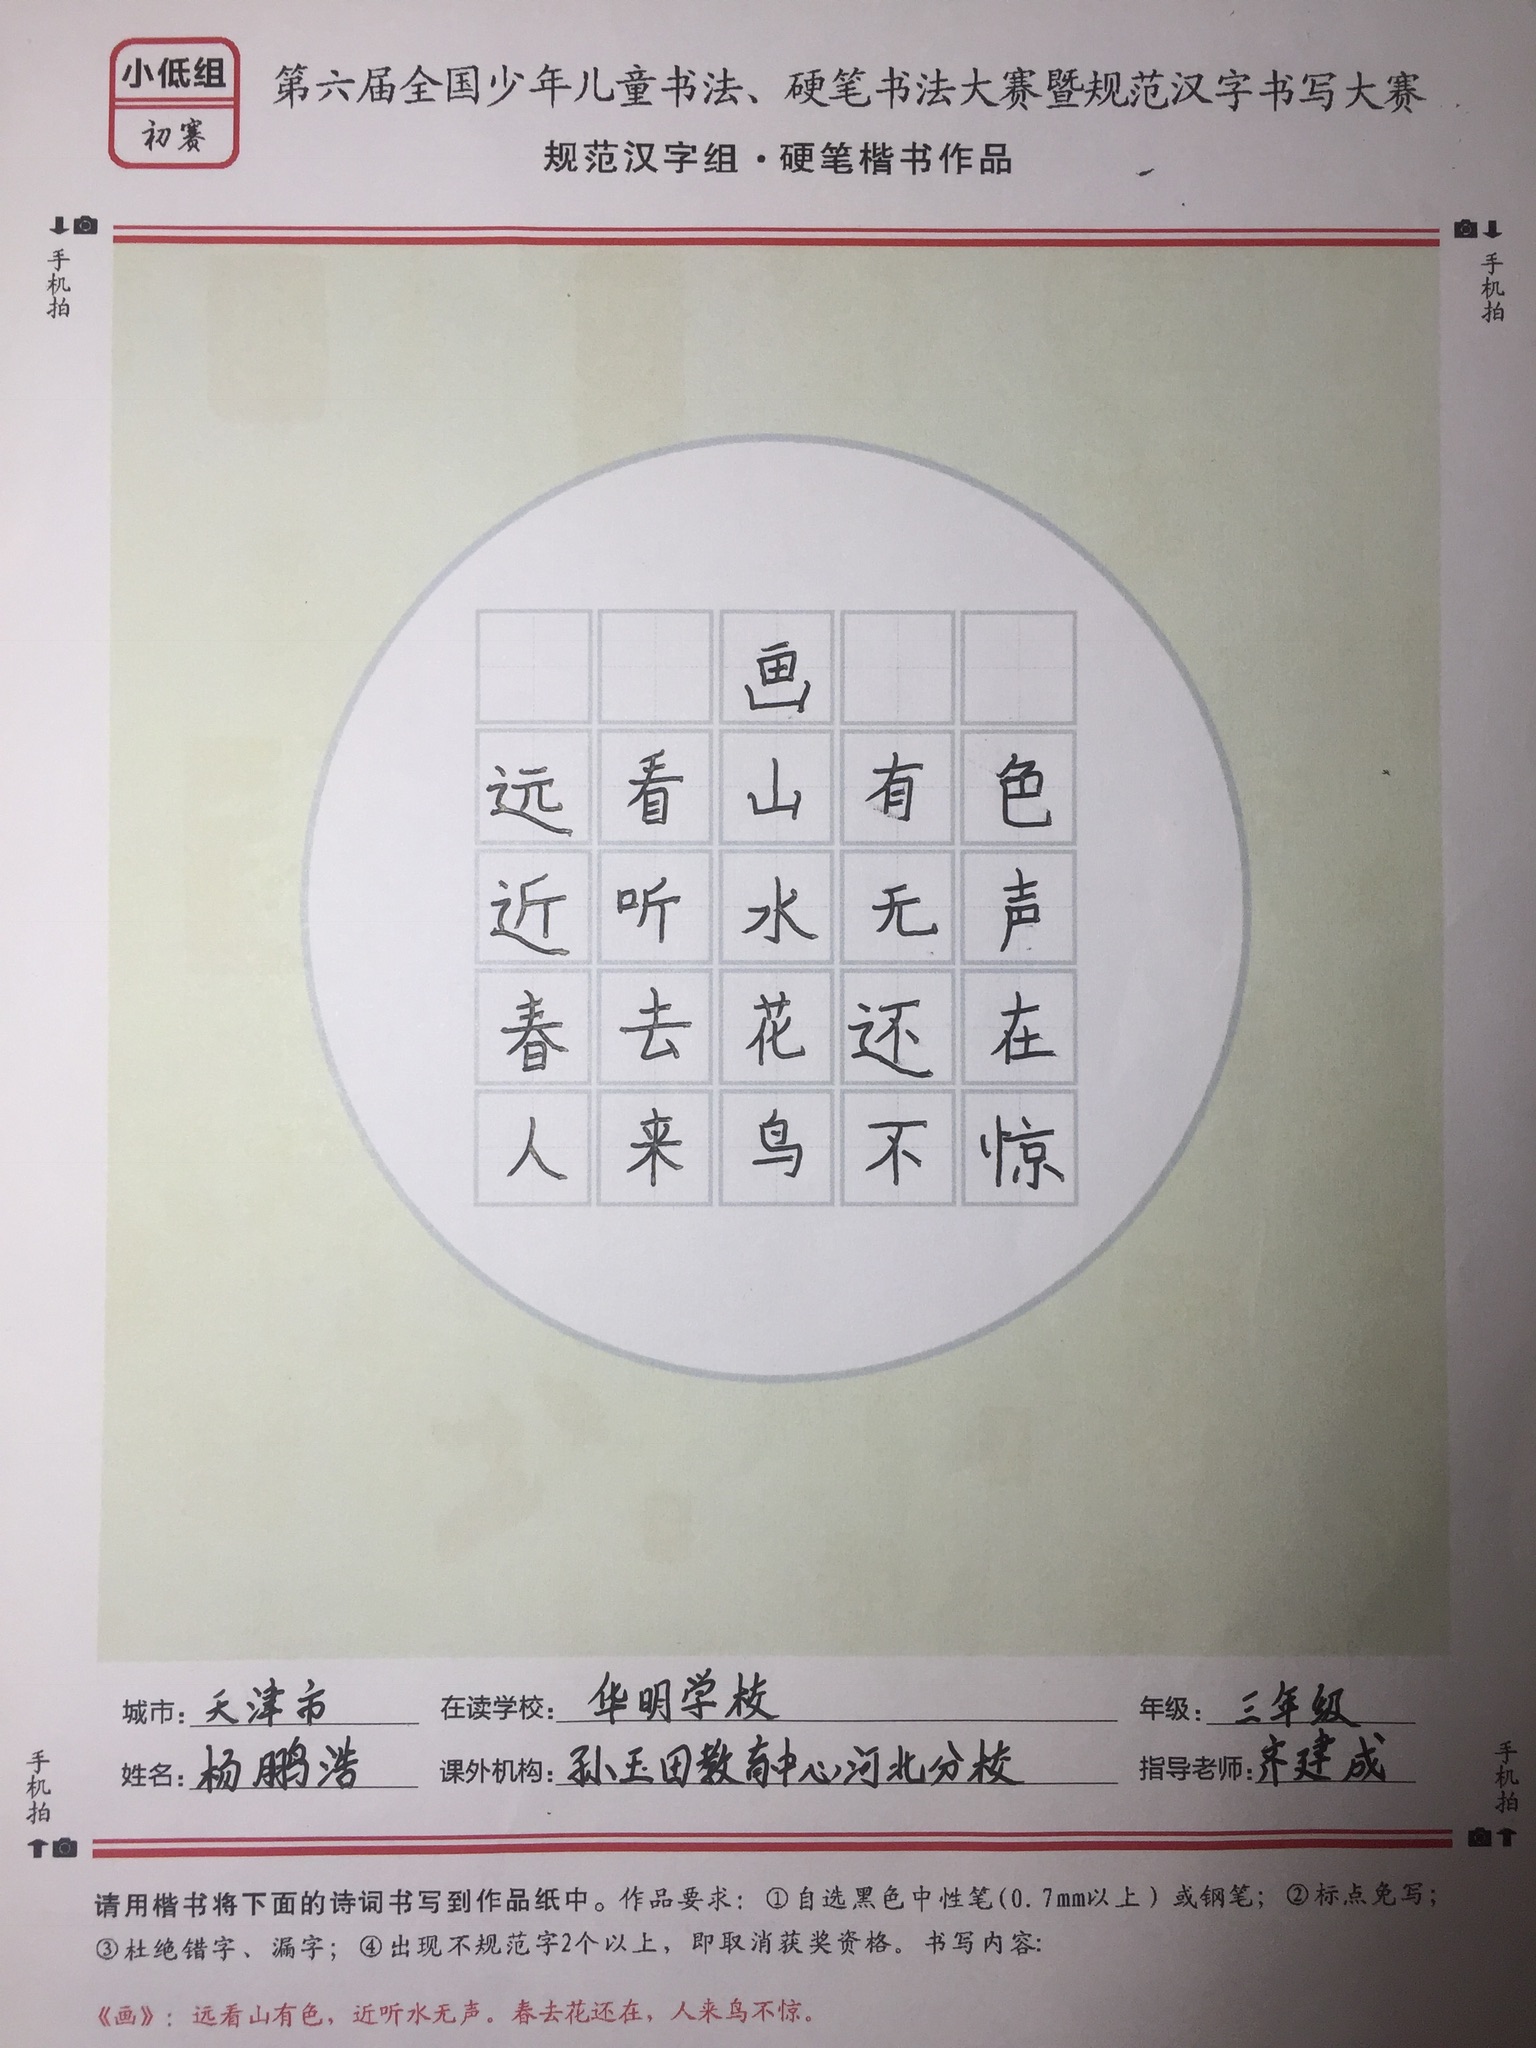 小低组
初赛
第六届全国少年儿童书法、硬笔书法大赛暨规范汉字书写大赛
规范汉字组·硬笔楷书作品
手机拍
手机拍
画
远看山有色
近听水无声
春去花还在
人来鸟不惊
城市：天津市 在读学校：华明学校 年级：三年级
姓名：杨鹏浩 课外机构：孙玉田教育中心河北分校 指导老师：齐建成
手机拍
手机拍
请用楷书将下面的诗词书写到作品纸中。作品要求：①自选黑色中性笔(0.7mm以上)或钢笔；②标点免写；
③杜绝错字、漏字；④出现不规范字2个以上，即取消获奖资格。书写内容：
《画》：远看山有色，近听水无声。春去花还在，人来鸟不惊。